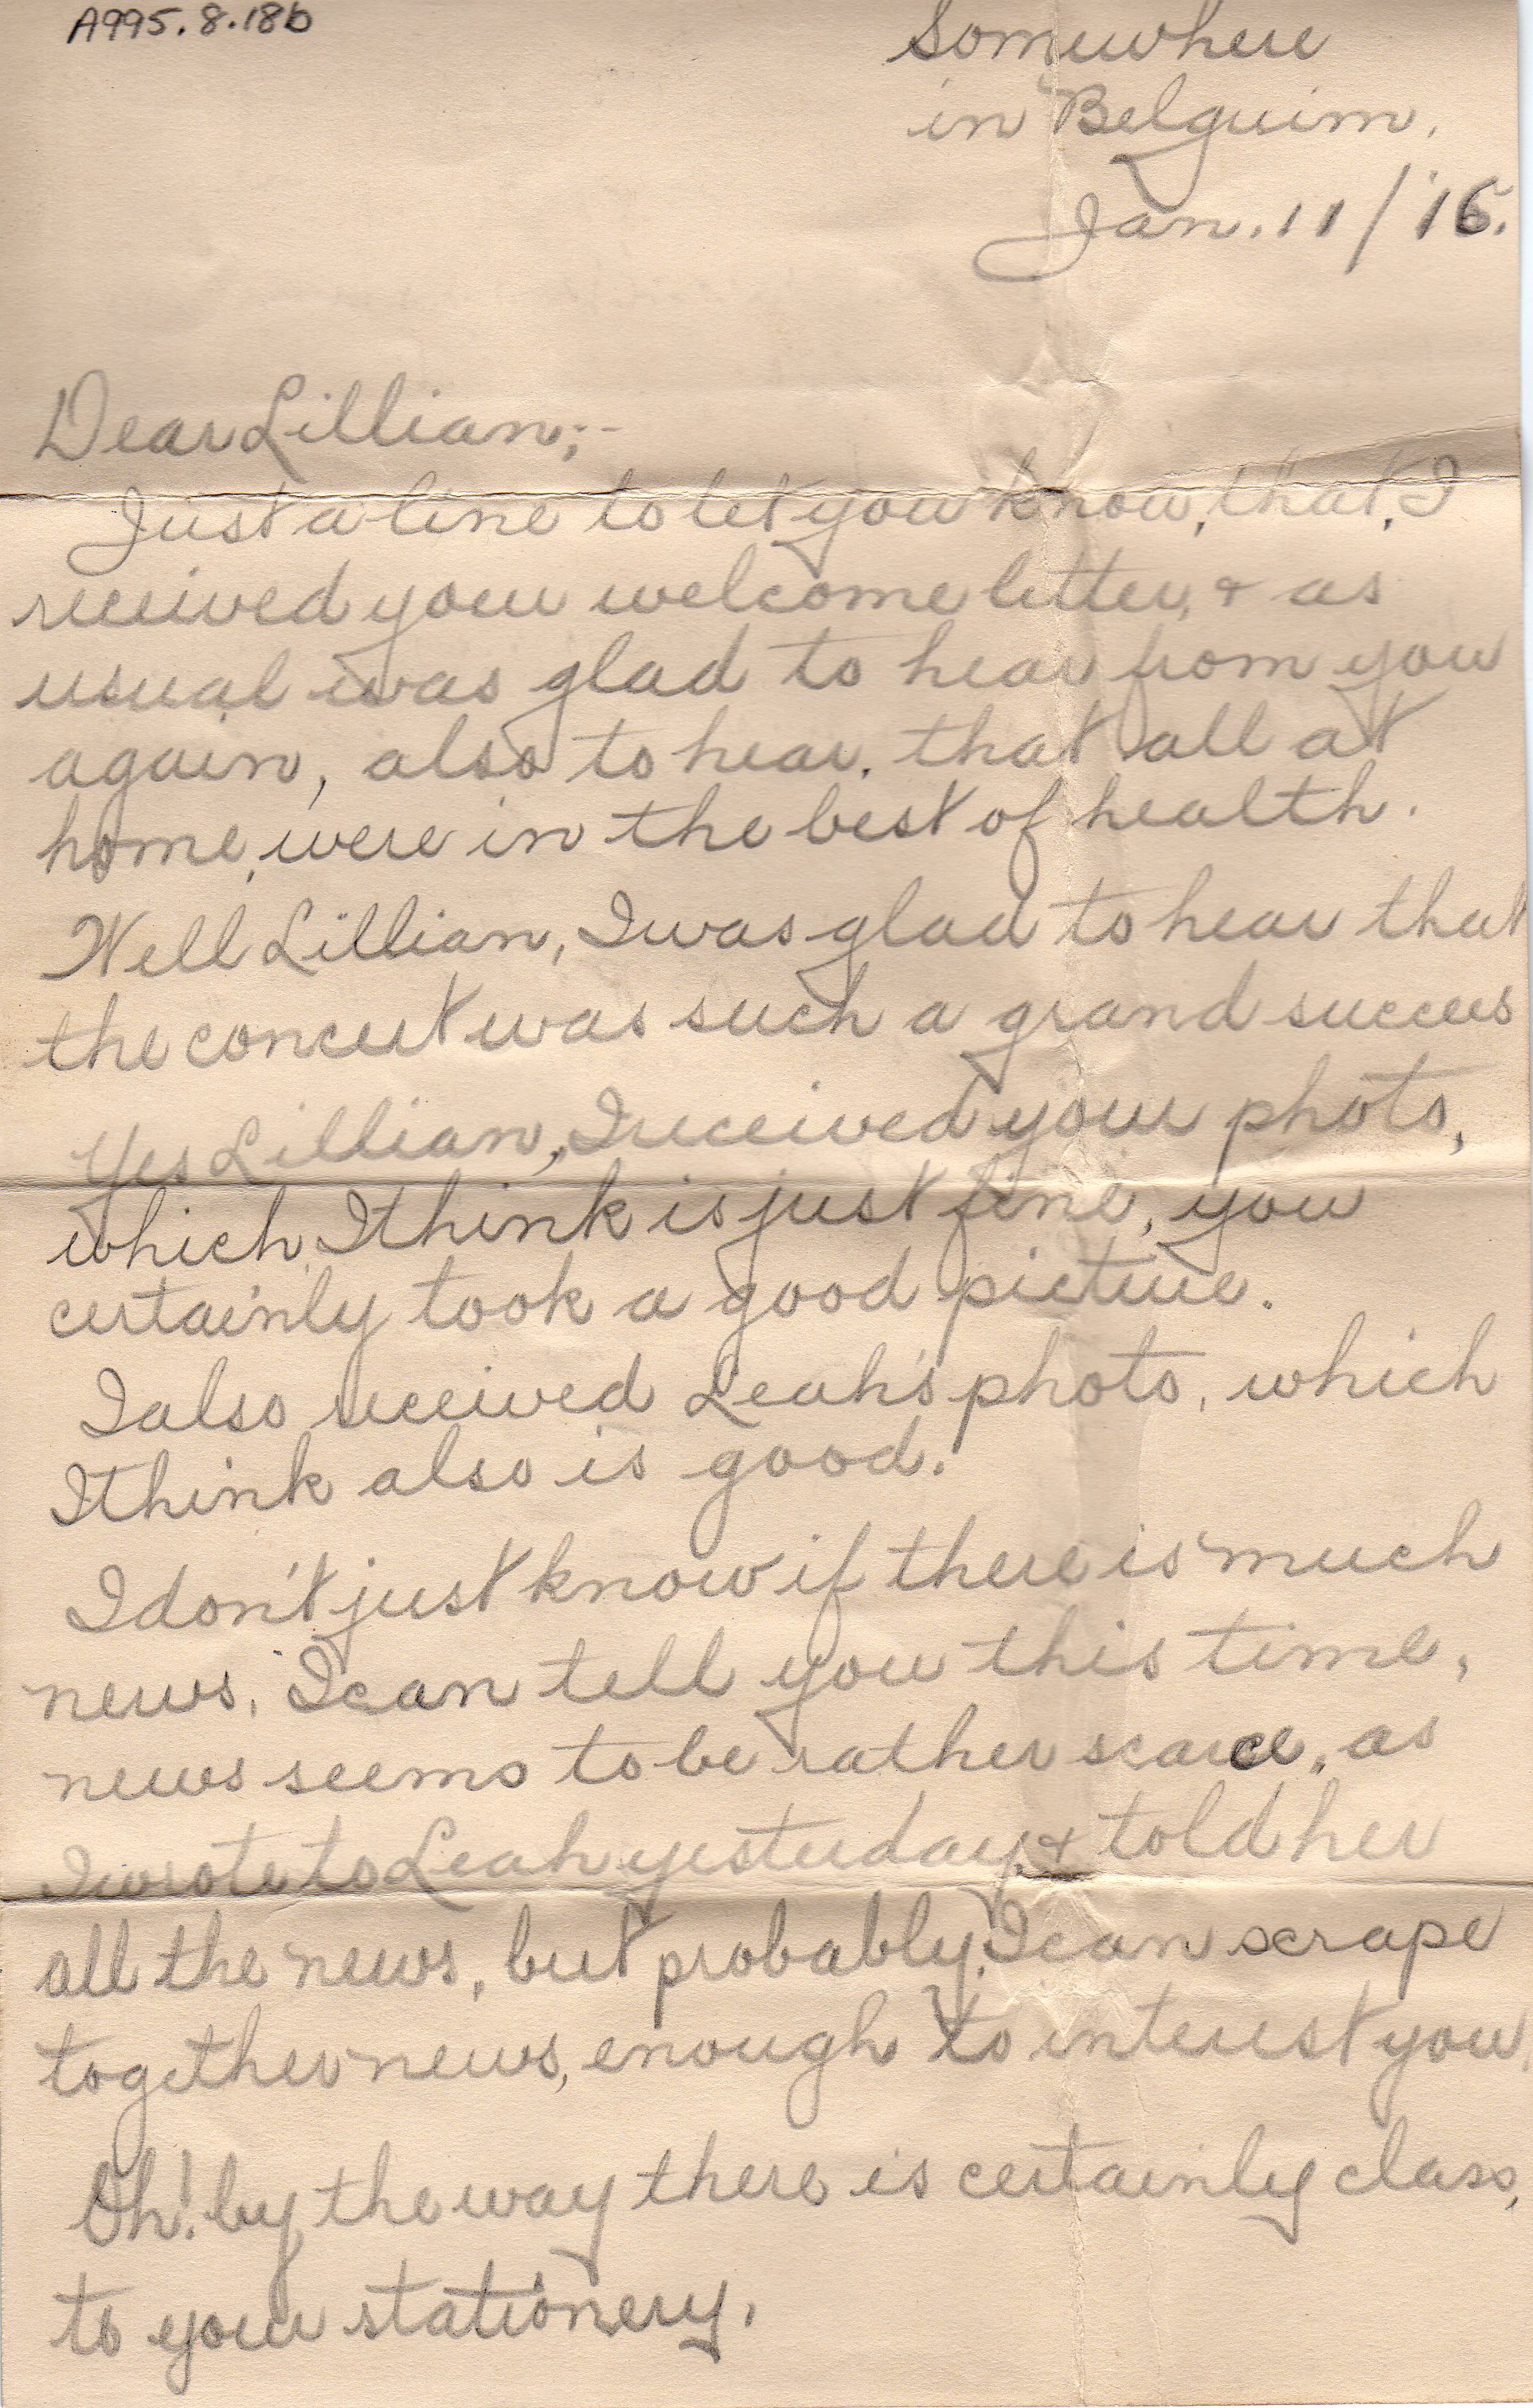 A995.8.18b
Somewhere
in Belguim.
Jan. 11/'16.
Dear Lillian;-
Just a line to let you know, that, I
received your welcome letter, & as
usual was glad to hear from you
again, also to hear, that all at
home, were in the best of health.
Well Lillian, I was glad to hear that
the concert was such a grand succees
Yes Lillian, I received your photo,
which, I think is just fine, you
certainly took a good picture.
I also received Leah's photo, which
I think also is good.
I don't just know if there is much
news, I can tell you this time,
news seems to be rather scarce, as
I wrote to Leah yesterday, & told her
all the news, but probably, I can scrape
together news, enough to interest you,
Oh! by the way there is certainly class,
to your stationery.